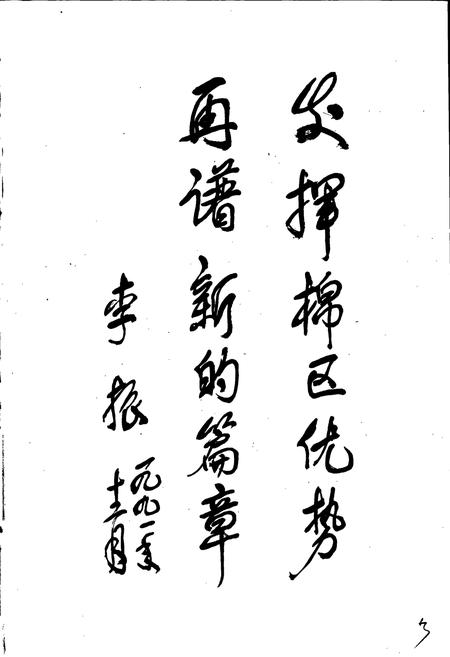 发挥棉区优势
再谱新的篇章
李振
一九九一年
十二月